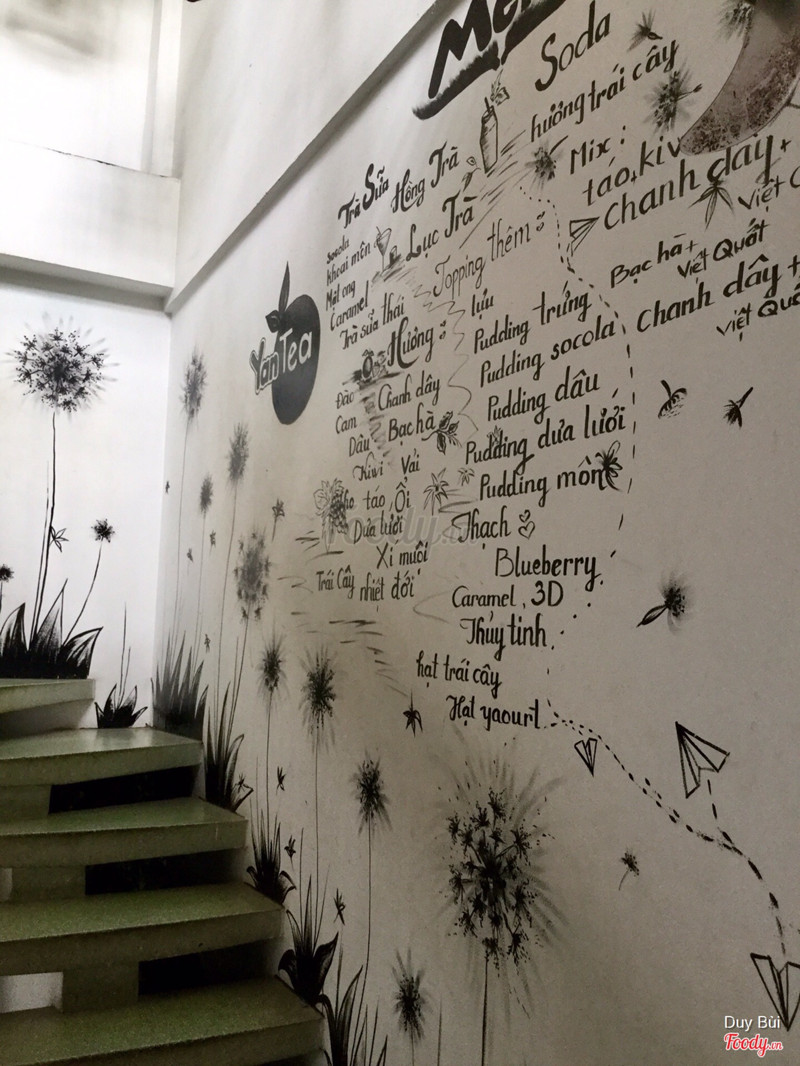 Soda
hương trái cây
Mix :
táo, kiwi
chanh dây +
Việt
Bạc hà +
Việt Quất
chanh dây +
Việt Quất
Trà Sữa
Hồng Trà
Lục Trà
socola
khoai môn
Mật ong
Caramel
Trà sữa thái
YanTea
Hương :
Đào
Chanh dây
Cam
Bạc hà
Dâu
Kiwi
Vải
táo
Ổi
Dưa lưới
Xí muội
Trái Cây
nhiệt đới
Topping thêm :
lựu
Pudding trứng
Pudding socola
Pudding dâu
Pudding dưa lưới
Pudding môn
Thạch
Blueberry
Caramel, 3D
Thủy tinh
hạt trái cây
Hạt yaourt
Foody.vn
Duy Bùi
Foody.vn